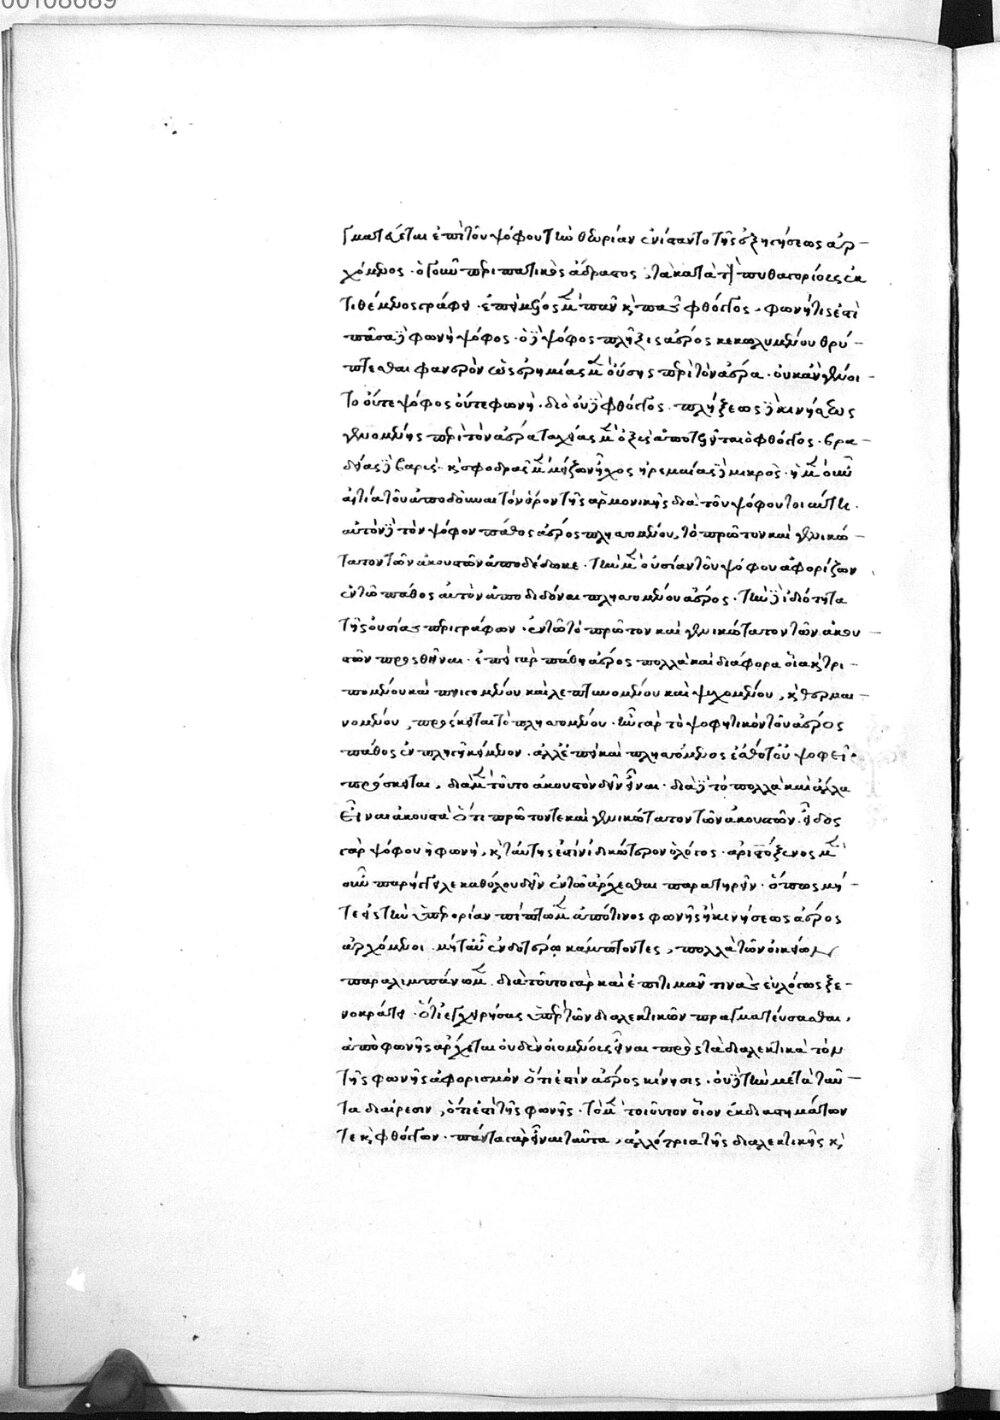 00108689
γματεύεται ἐπὶ τὸν ψόφον τὴν θεωρίαν ἐνίσταντο τῆς ἐξηγήσεως ἀρ-
χόμενος. ὁ γοῦν περιπατικὸς ἄδραστος, τὰ κατὰ τοὺς πυθαγορίους ἐκ
τιθέμενος γράφει. ἐπεὶ μέλος μὲν πᾶν καὶ πᾶς φθόγγος, φωνή τις ἐστὶ
πᾶσα δὲ φωνὴ ψόφος. ὁ δὲ ψόφος πλῆξις ἀέρος κεκωλυμένου θρύ-
πτεσθαι φανερὸν ὡς ἠρεμίας μὲν οὔσης περὶ τὸν ἀέρα. οὐκ ἂν γένοι-
το οὔτε ψόφος οὔτε φωνή. διὸ οὐδὲ φθόγγος. πλήξεως δὲ κινήσεως
γενομένης περὶ τὸν ἀέρα ταχείας μὲν ὀξὺς ἀποτελεῖται ὁ φθόγγος. βρα-
δείας δὲ βαρύς. καὶ σφοδρᾶς μὲν μείζων ἦχος ἠρεμαίας δὲ μικρός. ἡ μὲν οὖν
αἰτία τοῦ ἀποδοῦναι τὸν ὅρον τῆς ἁρμονικῆς διὰ τοῦ ψόφου τοιαύτη.
αὐτὸν δὲ τὸν ψόφον πάθος ἀέρος πλησσομένου, τὸ πρῶτον καὶ γενικώ-
τατον τῶν ἀκουστῶν ἀποδέδωκε. τὴν μὲν οὐσίαν τοῦ ψόφου ἀφορίζων
ἐν τῷ πάθος αὐτὸν ἀποδιδόναι πλησσομένου ἀέρος. τὴν δὲ ἰδιότητα
τῆς οὐσίας περιγράφων. ἐν τῷ τὸ πρῶτον καὶ γενικώτατον τῶν ἀκου-
στῶν προσθεῖναι. ἐπεὶ γὰρ πάθη ἀέρος πολλὰ καὶ διάφορα οἷα καὶ τρε-
πομένου καὶ πνιγομένου καὶ λεπτυνομένου καὶ ψυχομένου, καὶ θερμαι-
νομένου, πρόσκειται τὸ πλησσομένου. ἦν γὰρ τὸ ψοφητικὸν τοῦ ἀέρος
πάθος ἐν πληγῇ κείμενον. ἀλλ' ἐπεὶ καὶ πλησσόμενος ἔσθ' ὅτε οὐ ψοφεῖ.
πρόσκειται, διὰ μὲν τοῦτο ἀκουστὸν δεῖν εἶναι. διὰ δὲ τὸ πολλὰ καὶ ἄλλα
εἶναι ἀκουστὰ ὅτι πρῶτόν τε καὶ γενικώτατον τῶν ἀκουστῶν. εἶδος
γὰρ ψόφου ἡ φωνή, καὶ ταύτης ἐστὶν εἰδικώτερον ὁ λόγος. ἀριστόξενος μὲν
οὖν παρήγγειλε καθόλου δεῖν ἐν τῷ ἄρχεσθαι παρατηρεῖν. ὅπως μή-
τε εἰς τὴν ὑπερορίαν πίπτωμεν ἀπό τινος φωνῆς ἢ κινήσεως ἀέρος
ἀρχόμενοι. μήτ' αὖ ἐνδοτέρω κάμπτοντες, πολλὰ τῶν οἰκείων
παραλιμπάνωμεν. διὰ τοῦτο γὰρ καὶ ἐπιτιμᾶν τινας εὐλόγως ξε-
νοκράτη. ὅτι ἐγχειρήσας ὑπὲρ τῶν διαλεκτικῶν πραγματεύσασθαι,
ἀπὸ φωνῆς ἄρχεται οὐδὲν οἰομένοις εἶναι πρὸς τὰ διαλεκτικὰ τὸν
τῆς φωνῆς ἀφορισμὸν ὅτι ἐστὶν ἀέρος κίνησις. οὐδὲ τὴν μετὰ ταῦ-
τα διαίρεσιν, ὅτι ἐστὶ τῆς φωνῆς. τὸ μὲν τοιοῦτον οἷον ἐκ διαστημάτων
τε καὶ φθόγγων. πάντα γὰρ εἶναι ταῦτα, ἀλλότρια τῆς διαλεκτικῆς καὶ